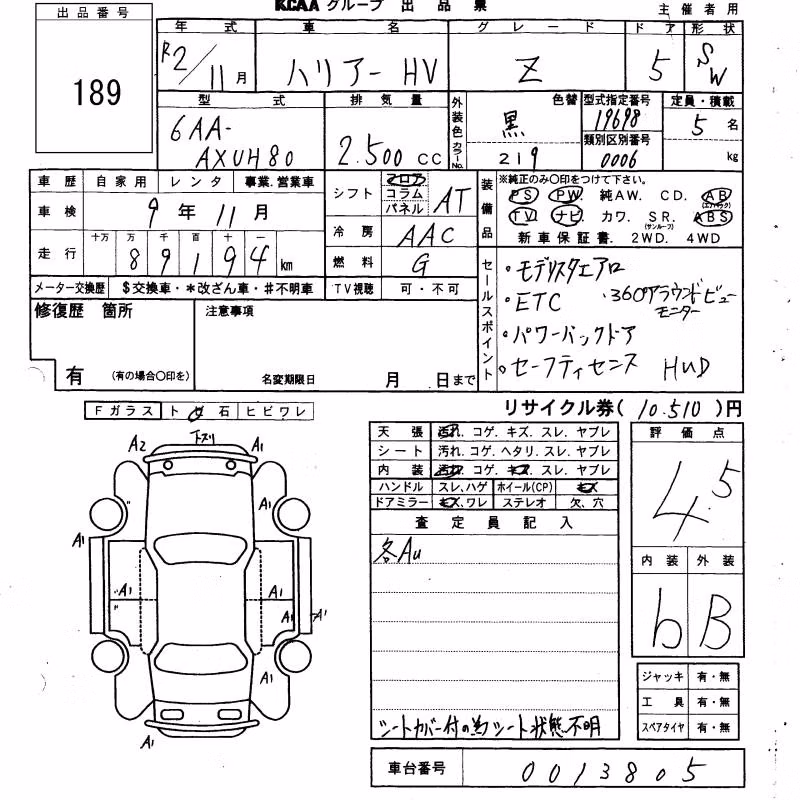 KCAA グループ 出品票
主催者用
出品番号
189
年式 車名 グレード ドア 形状
R2/11月 ハリアーHV Z 5 SW
型式 排気量 外装色 カラーNo. 色替 型式指定番号 定員・積載
6AA-AXUH80 2.500cc 黒 219 19698 5名
類別区別番号
0006 kg
車歴 自家用 レンタ 事業.営業車
車検 9年 11月
走行 十万 万 千 百 十 一
89194 km
シフト フロア コラム パネル AT
冷房 AAC
燃料 G
装備品
※純正のみ〇印をつけて下さい。
PS PW. 純AW. CD. AB (エアバック)
TV ナビ カワ. SR. (サンルーフ) ABS
新車保証書. 2WD. 4WD
メーター交換歴 $交換車・*改ざん車・#不明車 TV視聴 可・不可
セールスポイント
・モデリスタエアロ
・ETC ・360°アラウンドビューモニター
・パワーバックドア
・セーフティセンス HUD
修復歴 箇所 注意事項
有 (有の場合〇印を) 名変期限日 月 日まで
リサイクル券( 10.510 )円
Fガラス トビ石 ヒビワレ
下スリ
A2 A1
A1
A1 A1
A1 A1
A1 A1
A1
A1
天張 汚れ.コゲ.キズ.スレ.ヤブレ
シート 汚れ.コゲ.ヘタリ.スレ.ヤブレ
内装 汚れ.コゲ.キズ.スレ.ヤブレ
ハンドル スレ.ハゲ ホイール(CP) キズ
ドアミラー キズ.ワレ ステレオ 欠.穴
査定員記入
各Au
シートカバー付の為シート状態不明
評価点
4.5
内装 外装
b B
ジャッキ 有・無
工具 有・無
スペアタイヤ 有・無
車台番号 0013805